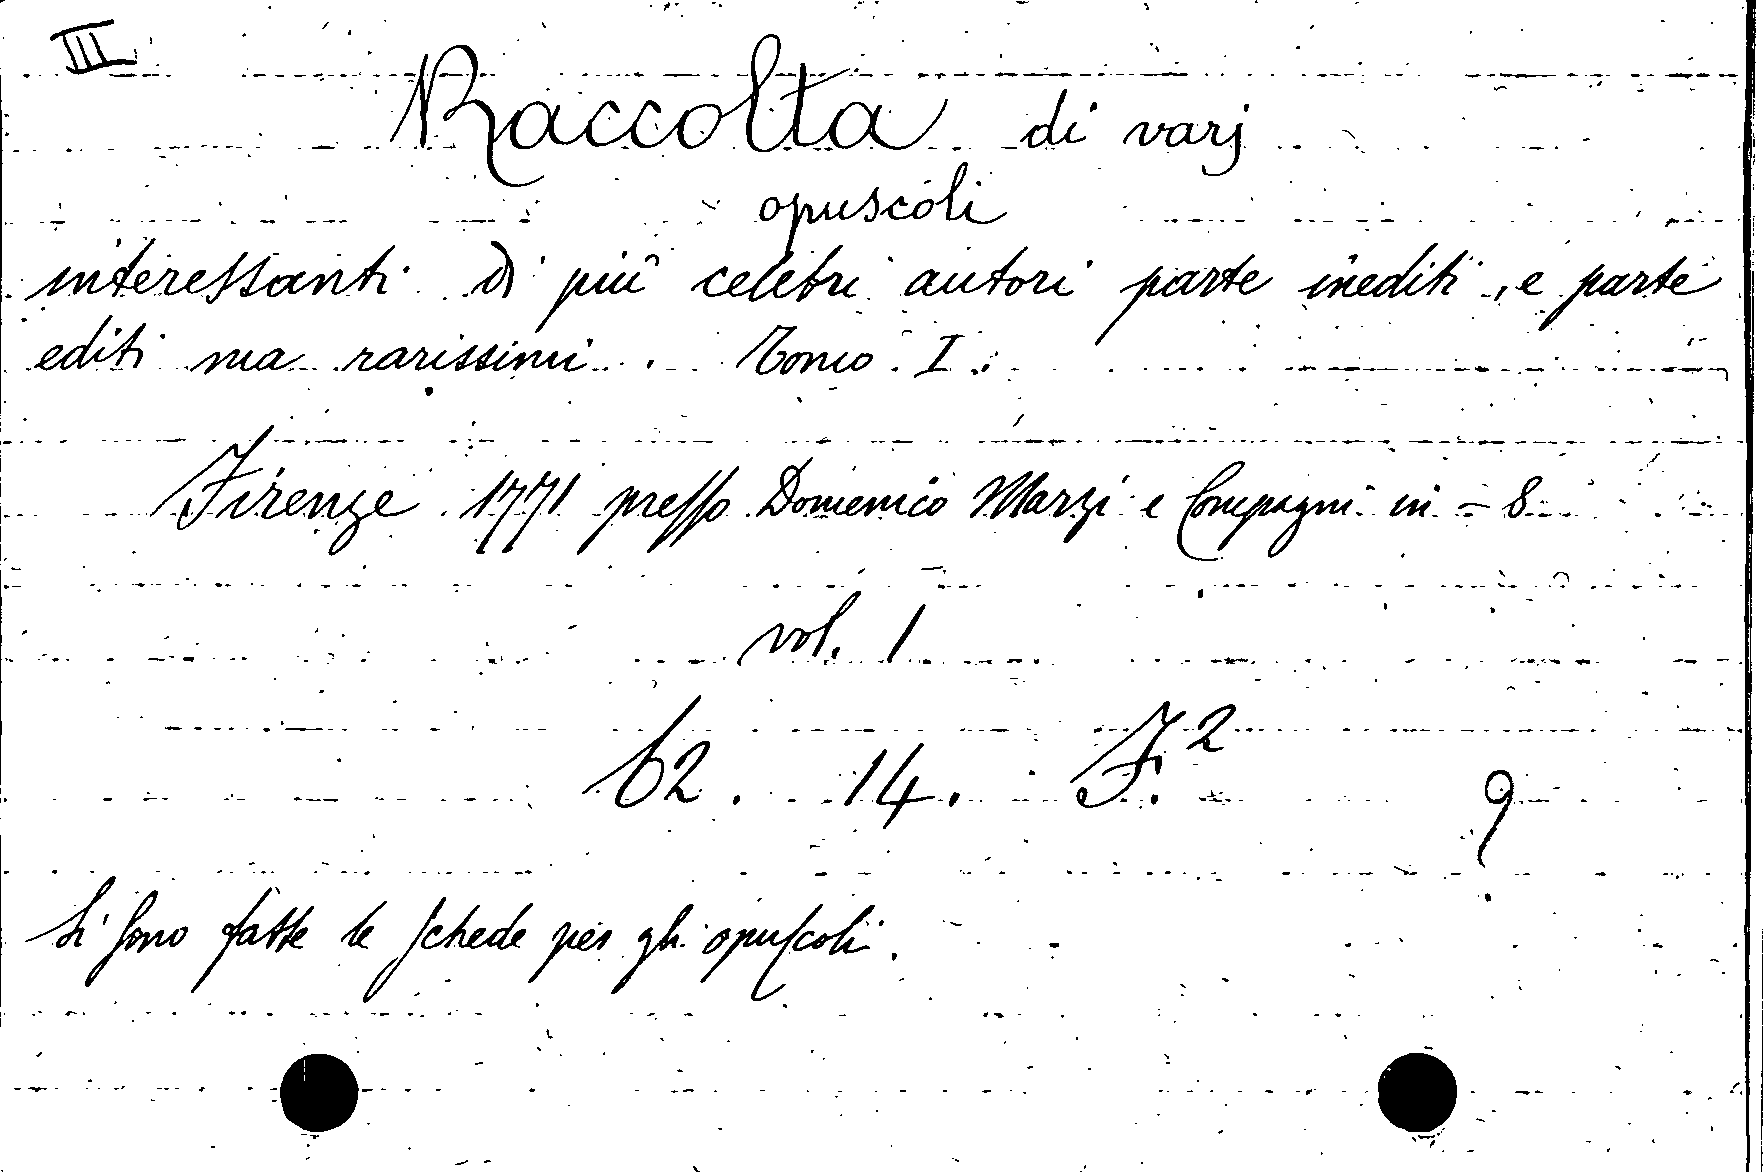 III
Raccolta di varj
opuscoli
interessanti di più celebri autori parte inediti, e parte
editi ma rarissimi. Tomo I.
Firenze 1771 presso Domenico Marzi e Compagni in-8
vol. 1
62. 14. F.² 9
Si sono fatte le schede per gli opuscoli.